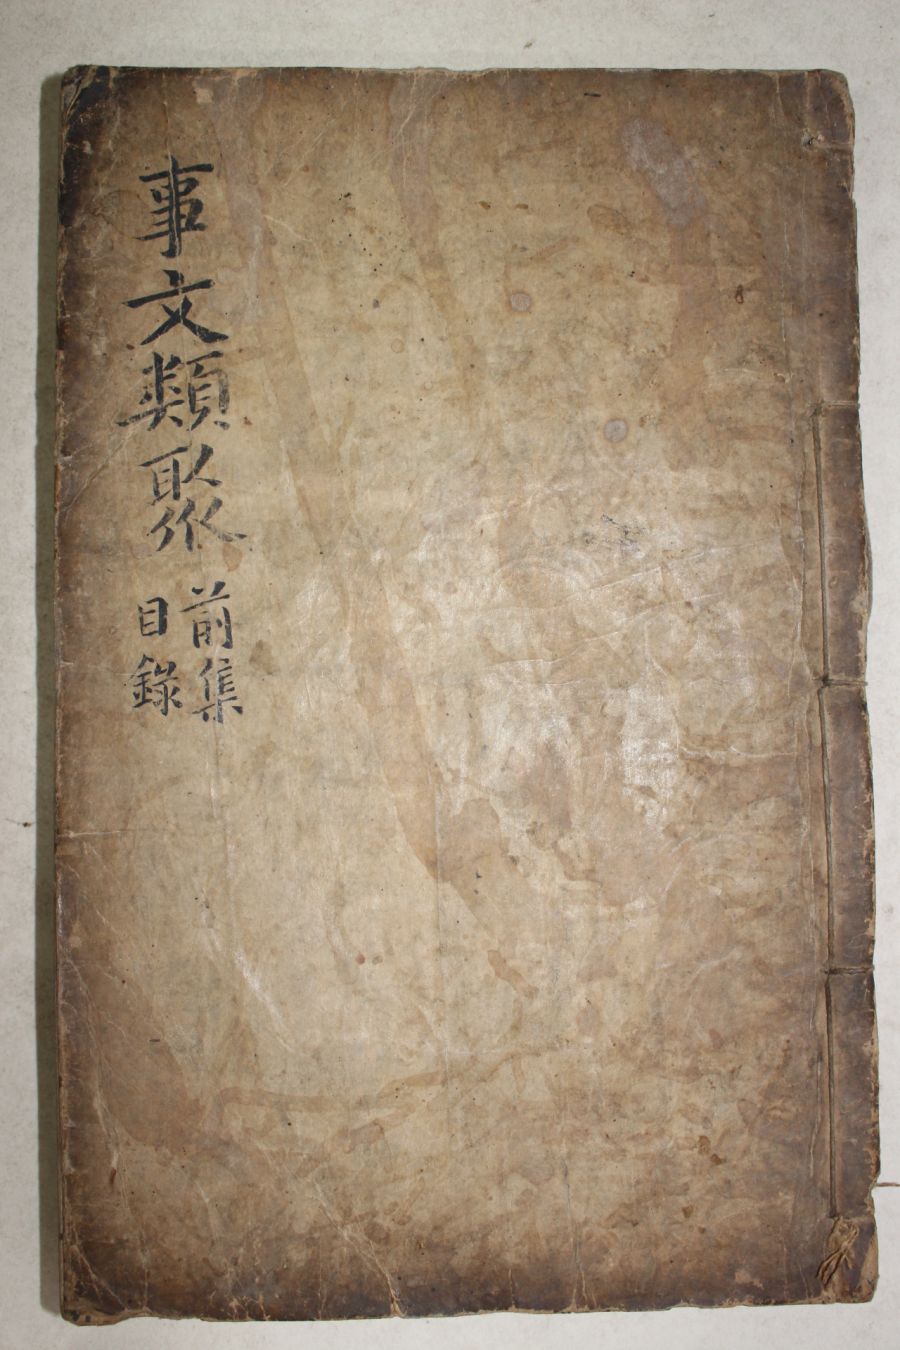 事文類聚
前集
目錄